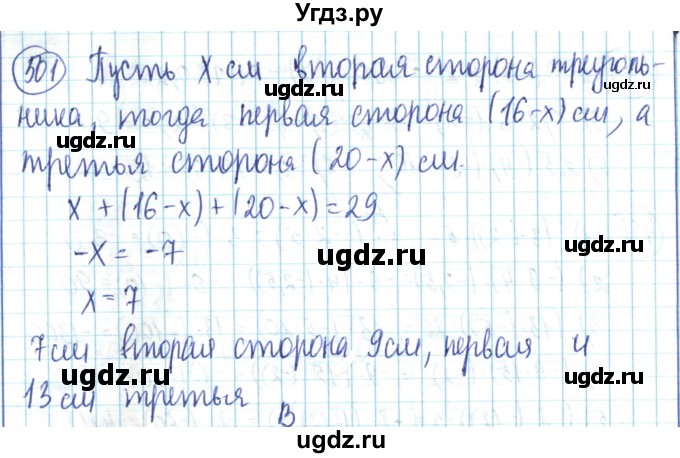 Угдз.ру
501 Пусть x см вторая сторона треуголь-
ника, тогда первая сторона (16-x) см, а
ugdz.ru ugdz.ru
третья сторона (20-x) см.
x + (16-x) + (20-x) = 29
ugdz.ru
-x = -7
ugdz.ru
x = 7
ugdz.ru
7 см вторая сторона 9 см, первая и
ugdz.ru ugdz.ru
13 см третья
В
ugdz.ru